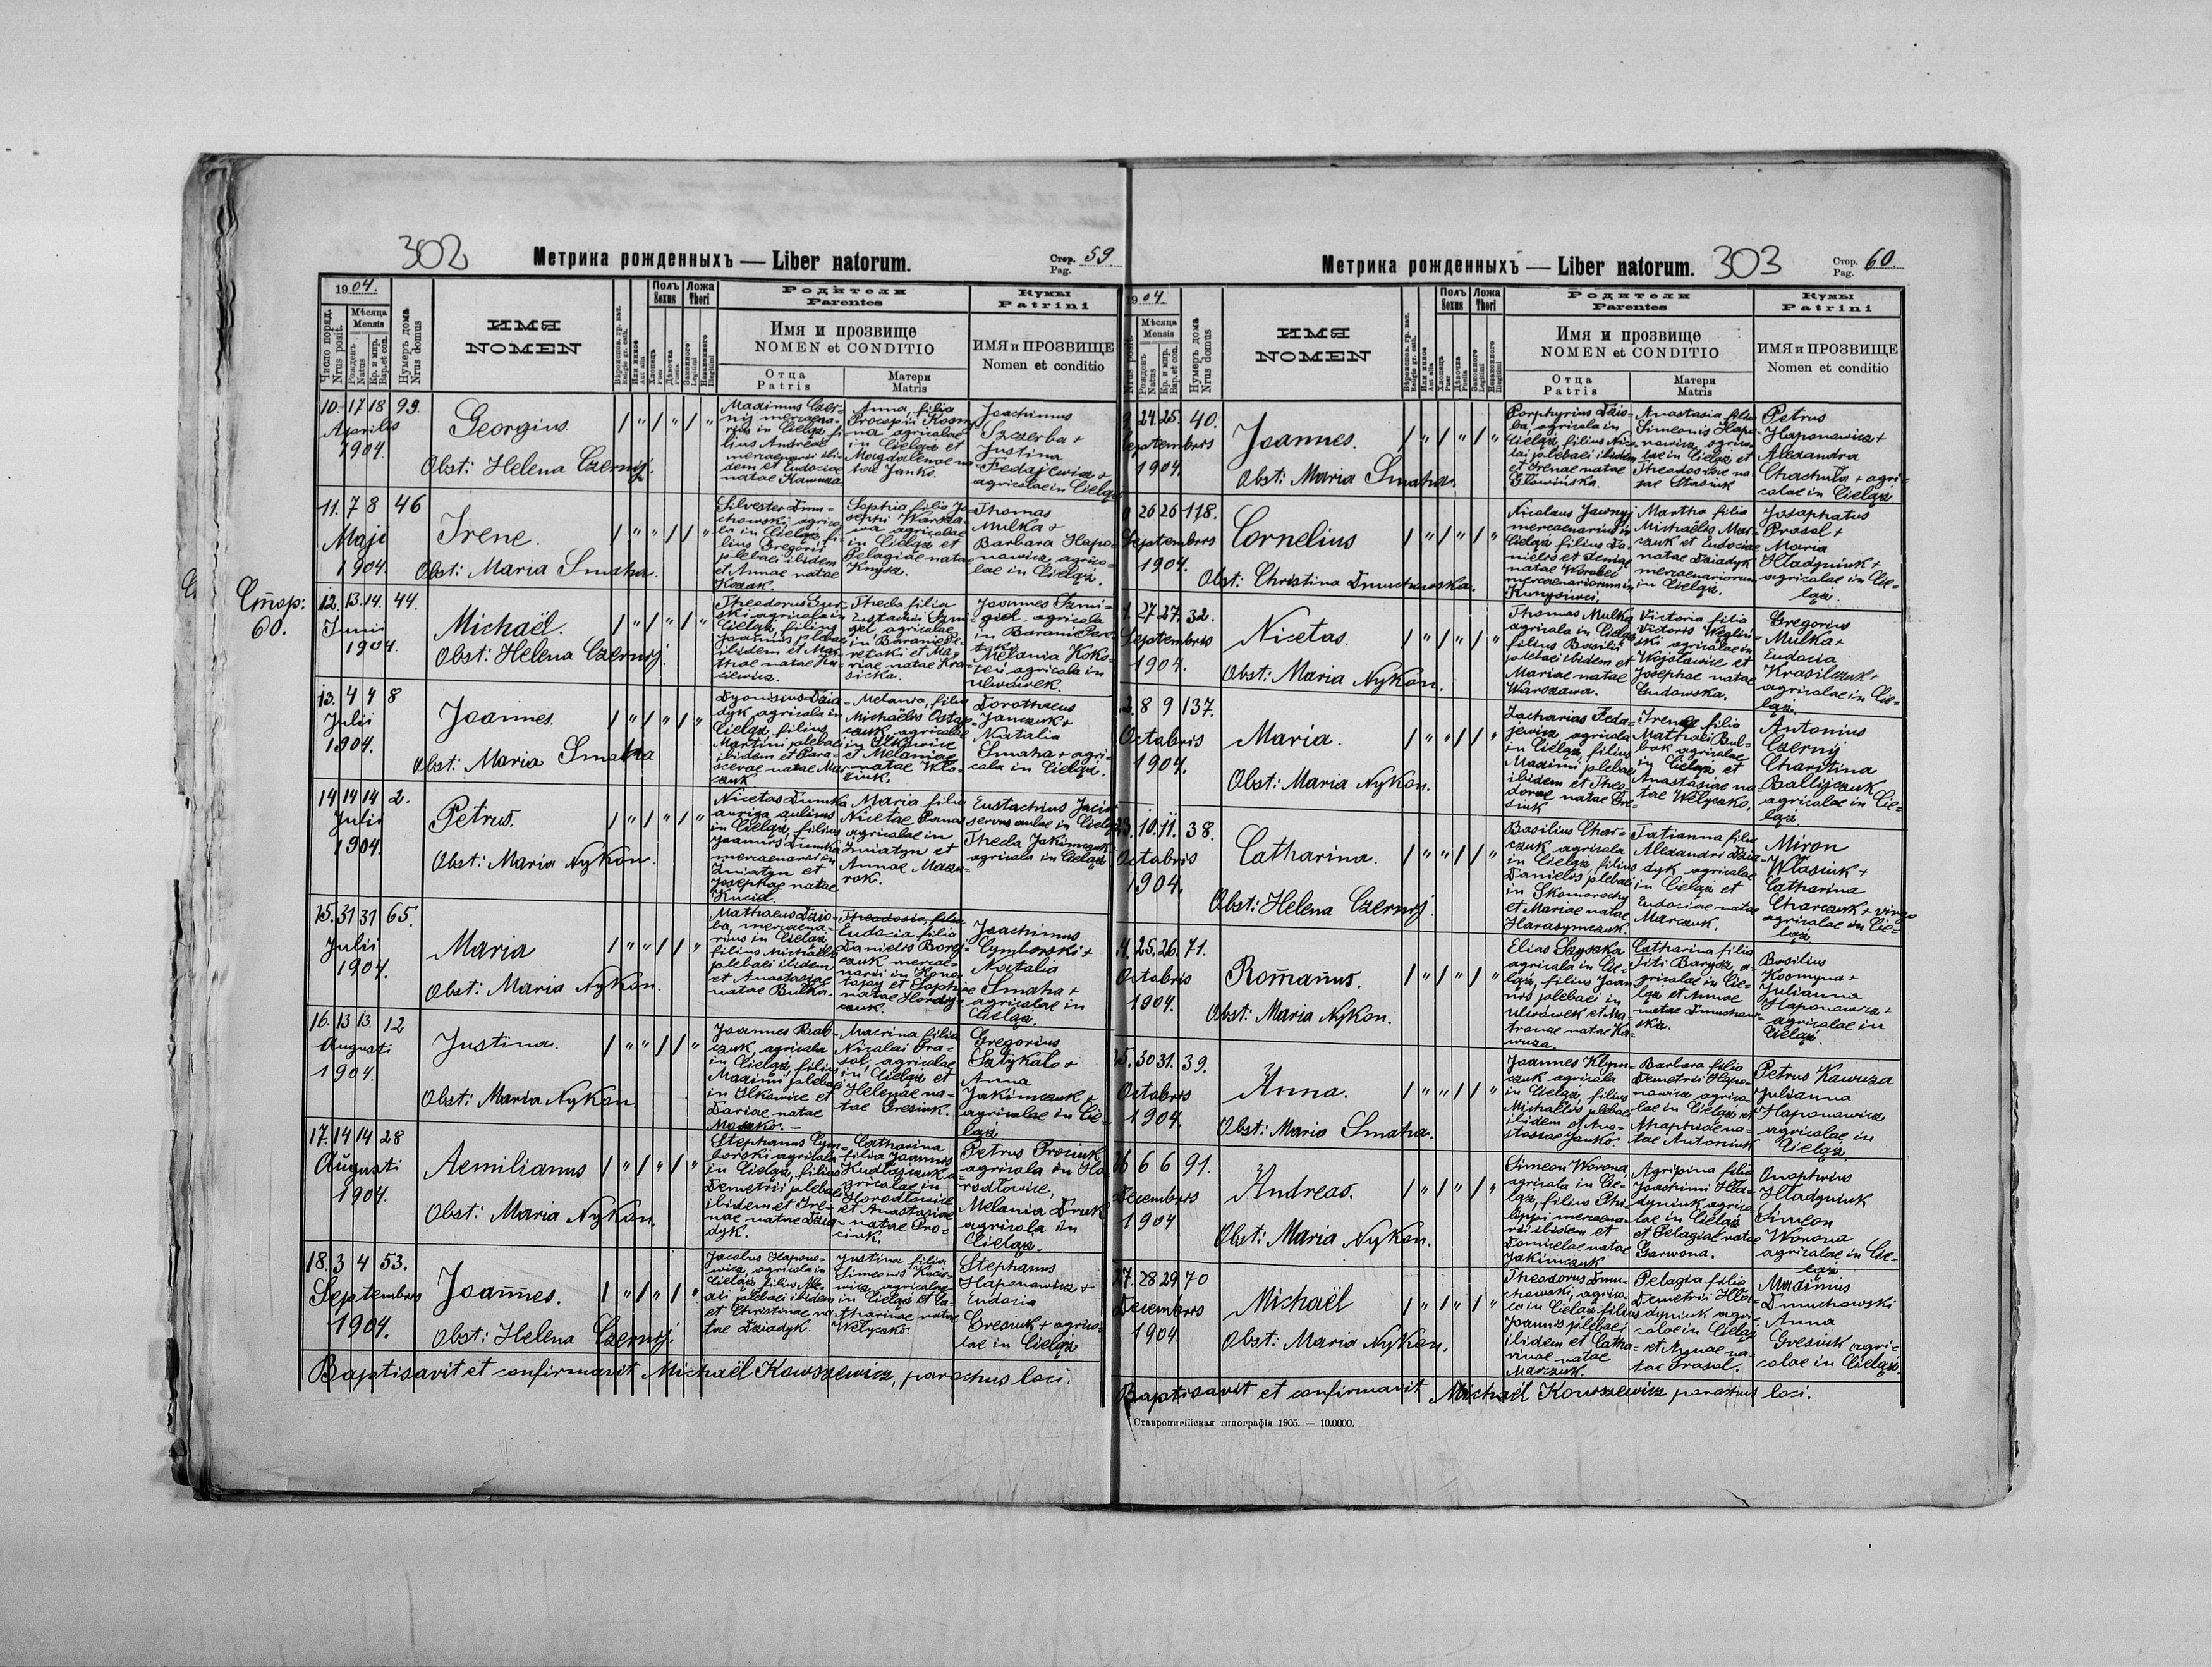 302
Метрика рожденныхъ — Liber natorum.
Стор. Pag. 59
1904.
Число поряд. Nrus posit.
Мѣсяца Mensis
Рожденъ Natus
Кр. и мир. Bap. et con.
Нумеръ дома Nrus domus
ИМЯ
NOMEN
Полъ Sexus
Ложа Thori
Родители
Parentes
Имя и прозвище
NOMEN et CONDITIO
Отца Patris
Матери Matris
Кумы
Patrini
ИМЯ и ПРОЗВИЩЕ
Nomen et conditio
10. 17 18 99.
Aprilis
1904.
Georgius
Obst: Helena Czernyj.
Anna, filia
Joachimus
Szczerba +
Justina
Fedajewicz +
agricolae in Cieląż
11. 7 8 46
Maji
1904
Irene.
Obst: Maria Smaha.
Silvester Dmu-
chowski, agrico-
la in Cieląż, fi-
lius Gregorii
plebaei ibidem
et Annae natae
Kozak.
Sophia filia Jo-
sephi Warsza-
wa agricolae
in Cieląż et
Pelagiae natae
Knysz.
Thomas
Mulka +
Barbara Hapo-
nowicz, agrico-
lae in Cieląż.
Стор:
60.
12. 13. 14. 44.
Junii
1904.
Michaël.
Obst: Helena Czernyj.
Thecla filia
Eustachii Szmi-
giel agricolae
in Baranie Pe-
retoki et Ma-
riae natae Kra-
sicka.
Joannes Szmi-
giel agricola
in Baranie Pere-
toki
Melania Koko-
teń agricola in
Ulwówek.
13. 4 4 8
Julii
1904.
Joannes.
Obst: Maria Smaha
Dyonisius Dzia-
dyk agricola in
Cieląż, filius
Martini plebaei
ibidem et Para-
scevae natae Mar-
czuk
Melania, filia
Michaëlis Ostap-
czuk, agricolae
in Ilkowice
et Melaniae
natae Wło-
ziuk.
Dorotheus
Janczuk +
Natalia
Smaha + agri-
cola in Cieląż.
14 14 14 2.
Julii
1904.
Petrus.
Obst: Maria Nykon.
Nicetas Dumka
auriga aulicus
in Cieląż, filius
Joannis Dumka
mercenarii in
Żniatyn et
Josephae natae
Kucid.
Maria filia
Nicetae Panas
agricolae in
Żniatyn et
Annae Mazu-
rok.
Eustachius Jacin
servus aulae in Cieląż
Thecla Jakimczuk
agricola in Cieląż
15. 31 31 65.
Julii
1904.
Maria
Obst: Maria Nykon.
Mathaeus Dzio-
ba, mercena-
rius in Cieląż
filius Michaëlis
plebaei ibidem
et Anastasiae
natae Bulka.
Theodosia, filia
Eudocia filia
Danielis Borej-
czuk mercae-
narii in Kono-
topy et Sophiae
natae Hordij-
czuk.
Joachimus
Cymborski +
Natalia
Smaha +
agricolae in
Cieląż.
16. 13 13 12
Augusti
1904.
Justina.
Obst: Maria Nykon
Joannes Bab-
czuk, agricola
in Cieląż, filius
Maximi plebaei
in Ilkowice et
Dariae natae
Mosko. —
Macrina filia
Nicolai Pra-
sol, agricolae
in Cieląż et
Helenae na-
tae Gresiuk.
Gregorius
Satykało +
Anna
Jakimczuk +
agricolae in Cie-
ląż
17. 14 14 28
Augusti
1904.
Aemilianus
Obst: Maria Nykon.
Stephanus Cym-
borski agricola
in Cieląż, filius
Demetrii plebaei
ibidem et Ire-
nae natae Dzia-
dyk.
Catharina
filia Joannis
Kudłajczuk a-
gricolae in
Horodłowice
et Anastasiae
natae Pro-
ciuk.
Petrus Prociuk
agricola in Ho-
rodłowice,
Melania Druk
agricola in
Cieląż.
18. 3 4 53.
Septembris
1904.
Joannes.
Obst: Helena Czernyj.
Jacobus Hapono-
wicz, agricola in
Cieląż filius Ale-
xii plebaei ibidem
et Christinae na-
tae Dziadyk.
Justina filia
Simeonis Kucie-
wicz agricolae
in Cieląż et Ca-
tharinae natae
Wełyczko.
Stephanus
Haponowicz +
Eudocia
Gresiuk + agrico-
lae in Cieląż
Baptisavit et confirmavit Michaël Kowszewicz, parochus loci.
Метрика рожденныхъ — Liber natorum.
303
Стор. Pag. 60.
1904
Мѣсяца Mensis
Рожденъ Natus
Кр. и мир. Bap. et con.
Нумеръ дома Nrus domus
ИМЯ
NOMEN
Полъ Sexus
Ложа Thori
Родители
Parentes
Имя и прозвище
NOMEN et CONDITIO
Отца Patris
Матери Matris
Кумы
Patrini
ИМЯ и ПРОЗВИЩЕ
Nomen et conditio
9. 24. 25. 40.
Septembris
1904.
Joannes.
Obst: Maria Smaha.
Porphyrius Dzio-
ba, agricola in
Cieląż, filius Nico-
lai plebaei ibidem
et Irenae natae
Głowińska.
Anastasia filia
Simeonis Hapo-
nowicz, agrico-
lae in Cieląż et
Theodosiae na-
tae Stasiuk
Petrus
Haponowicz +
Alexandra
Chachuła + agri-
colae in Cieląż
0 26 26 118.
Septembris
1904.
Cornelius
Obst: Christina Dmuchowska.
Nicolaus Jawnyj
mercenarius in
Cieląż filius Da-
nielis et
natae Worobec
mercenariorum in
Martha filia
Michaëlis Mar-
czuk et Eudociae
natae Dziadyk
mercenariorum
in Cieląż.
Josaphatus
Prasol +
Maria
Hładyniuk +
agricolae in Cie-
ląż.
1. 27. 27. 32.
Septembris
1904.
Nicetas.
Obst: Maria Nykon.
Thomas Mulka
agricola in Cieląż
filius Basilii
plebaei ibidem et
Mariae natae
Warszawa.
Victoria filia
Victoris Węgliń-
ski agricolae in
Wojsławice et
Josephae natae
Ludowska.
Gregorius
Mulka +
Eudocia
Krasilczuk +
agricolae in Cie-
ląż.
2. 8 9 137.
Octobris
1904.
Maria.
Obst: Maria Nykon.
Zacharias Feda-
jewicz, agricola
in Cieląż, filius
Maximi plebaei
ibidem et Theo-
dorae natae Gre-
siuk
Irene filia
Mathaei Bul-
bak agricolae
in Cieląż et
Anastasiae na-
tae Wełyczko.
Antonius
Czernij
Charitina
Ballijczuk
agricolae in Cie-
ląż.
23. 10. 11. 38.
Octobris
1904.
Catharina.
Obst: Helena Czernyj.
Basilius Char-
czuk agricola
in Cieląż, filius
Danielis plebaei
in Skomorochy
et Mariae natae
Harasymczuk.
Tatianna filia
Alexandri Dzia-
dyk agricolae
in Cieląż et
Eudociae natae
Marczuk.
Miron
Własiuk +
Catharina
Charczuk + virgo
agricolae in Cie-
ląż
4. 25. 26. 71.
Octobris
1904.
Romanus.
Obst: Maria Nykon.
Elias Szyszka
agricola in Cie-
ląż, filius Joan-
nis plebaei in
Ulwówek et Ma-
tronae natae Ka-
wuza.
Catharina filia
Titi Barysz, a-
gricolae in Cie-
ląż et Annae
natae Dmuchow-
ska.
Basilius
Kosmyna +
Julianna
Haponowicz +
agricolae in
Cieląż.
25. 30 31. 39.
Octobris
1904.
Anna.
Obst: Maria Smaha.
Joannes Klym-
czuk agricola
in Cieląż, filius
Michaëlis plebaei
ibidem et Ana-
stasiae Janko.
Barbara filia
Demetrii Hapo-
nowicz agrico-
lae in Cieląż et
Ahaphiae na-
tae Antoniuk
Petrus Kawuza
Julianna
Haponowicz
agricolae in
Cieląż.
26 6 6 91.
Decembris
1904
Andreas.
Obst: Maria Nykon.
Simeon Worona,
agricola in Cie-
ląż, filius Phi-
lippi mercena-
rii ibidem et
Domicelae natae
Jakimczuk
Agripina filia
Joachimi Hła-
dyniuk agrico-
lae in Cieląż
et Pelagiae natae
Garwona.
Onuphrius
Hładyniuk
Simeon
Worona
agricolae in Cie-
ląż
27. 28 29 70
Decembris
1904
Michaël
Obst: Maria Nykon.
Theodorus Dmu-
chowski, agrico-
la in Cieląż filius
Joannis plebaei
ibidem et Catha-
rinae natae
Marczuk.
Pelagia filia
Demetrii Hła-
dyniuk agri-
colae in Cieląż
et Agnae na-
tae Prasol.
Maximus
Dmuchowski
Anna
Gresiuk agri-
colae in Cieląż
Baptisavit et confirmavit Michaël Kowszewicz parochus loci.
Ставропигійская типографія 1905. — 10.0000.